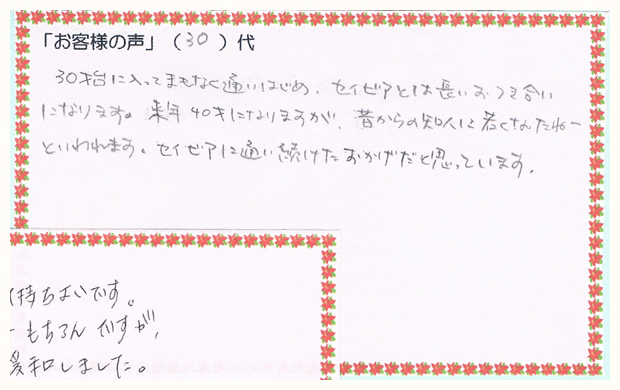 「お客様の声」（30）代
30才台に入ってまもなく通いはじめ、セイゼアとは長いおつき合い
になります。来年40才になりますが、昔からの知人に若くなったねー
といわれます。セイゼアに通い続けたおかげだと思っています。
持ちよいです。
もちろんですが、
緩和しました。